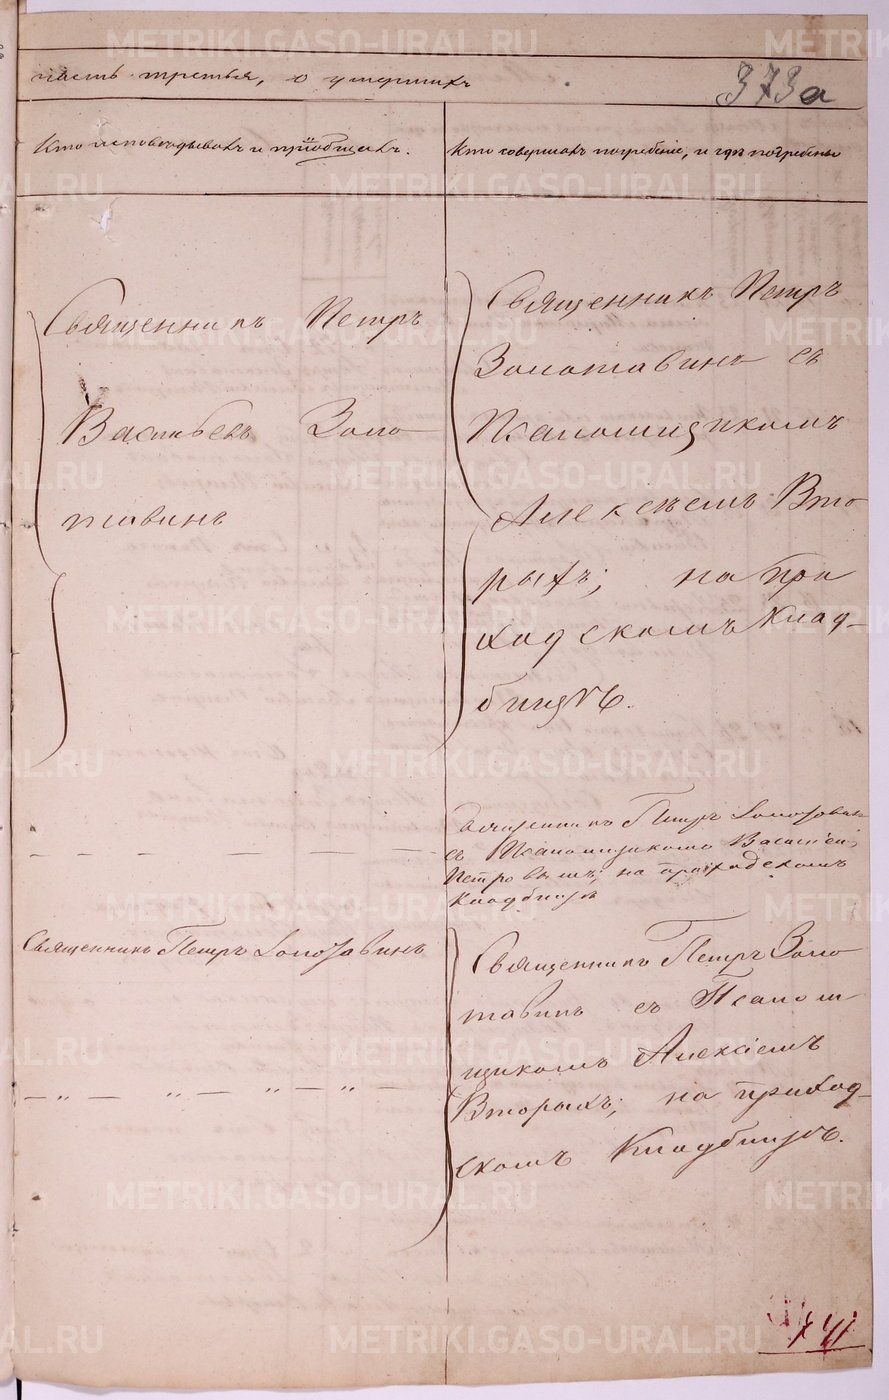 часть третья, о умершихъ
373а
Кто исповѣдывалъ и пріобщалъ.
Кто совершалъ погребеніе, и гдѣ погребены
Священникъ Петръ
Васильевъ Золо
тавинъ
Священникъ Петръ
Золотавинъ съ
Псаломщикомъ
Алексѣемъ Вто
рыхъ; на при
ходскомъ Клад-
бищѣ.
Священникъ Петръ Золотавин
съ Псаломщикомъ Василіем
Петровымъ; на приходскомъ
Кладбищѣ
Священникъ Петръ Золотавинъ
Священникъ Петръ Золо
тавинъ съ Псалом
щикомъ Алексіемъ
Вторыхъ; на приход-
скомъ Кладбищѣ.
METRIKI.GASO-URAL.RU